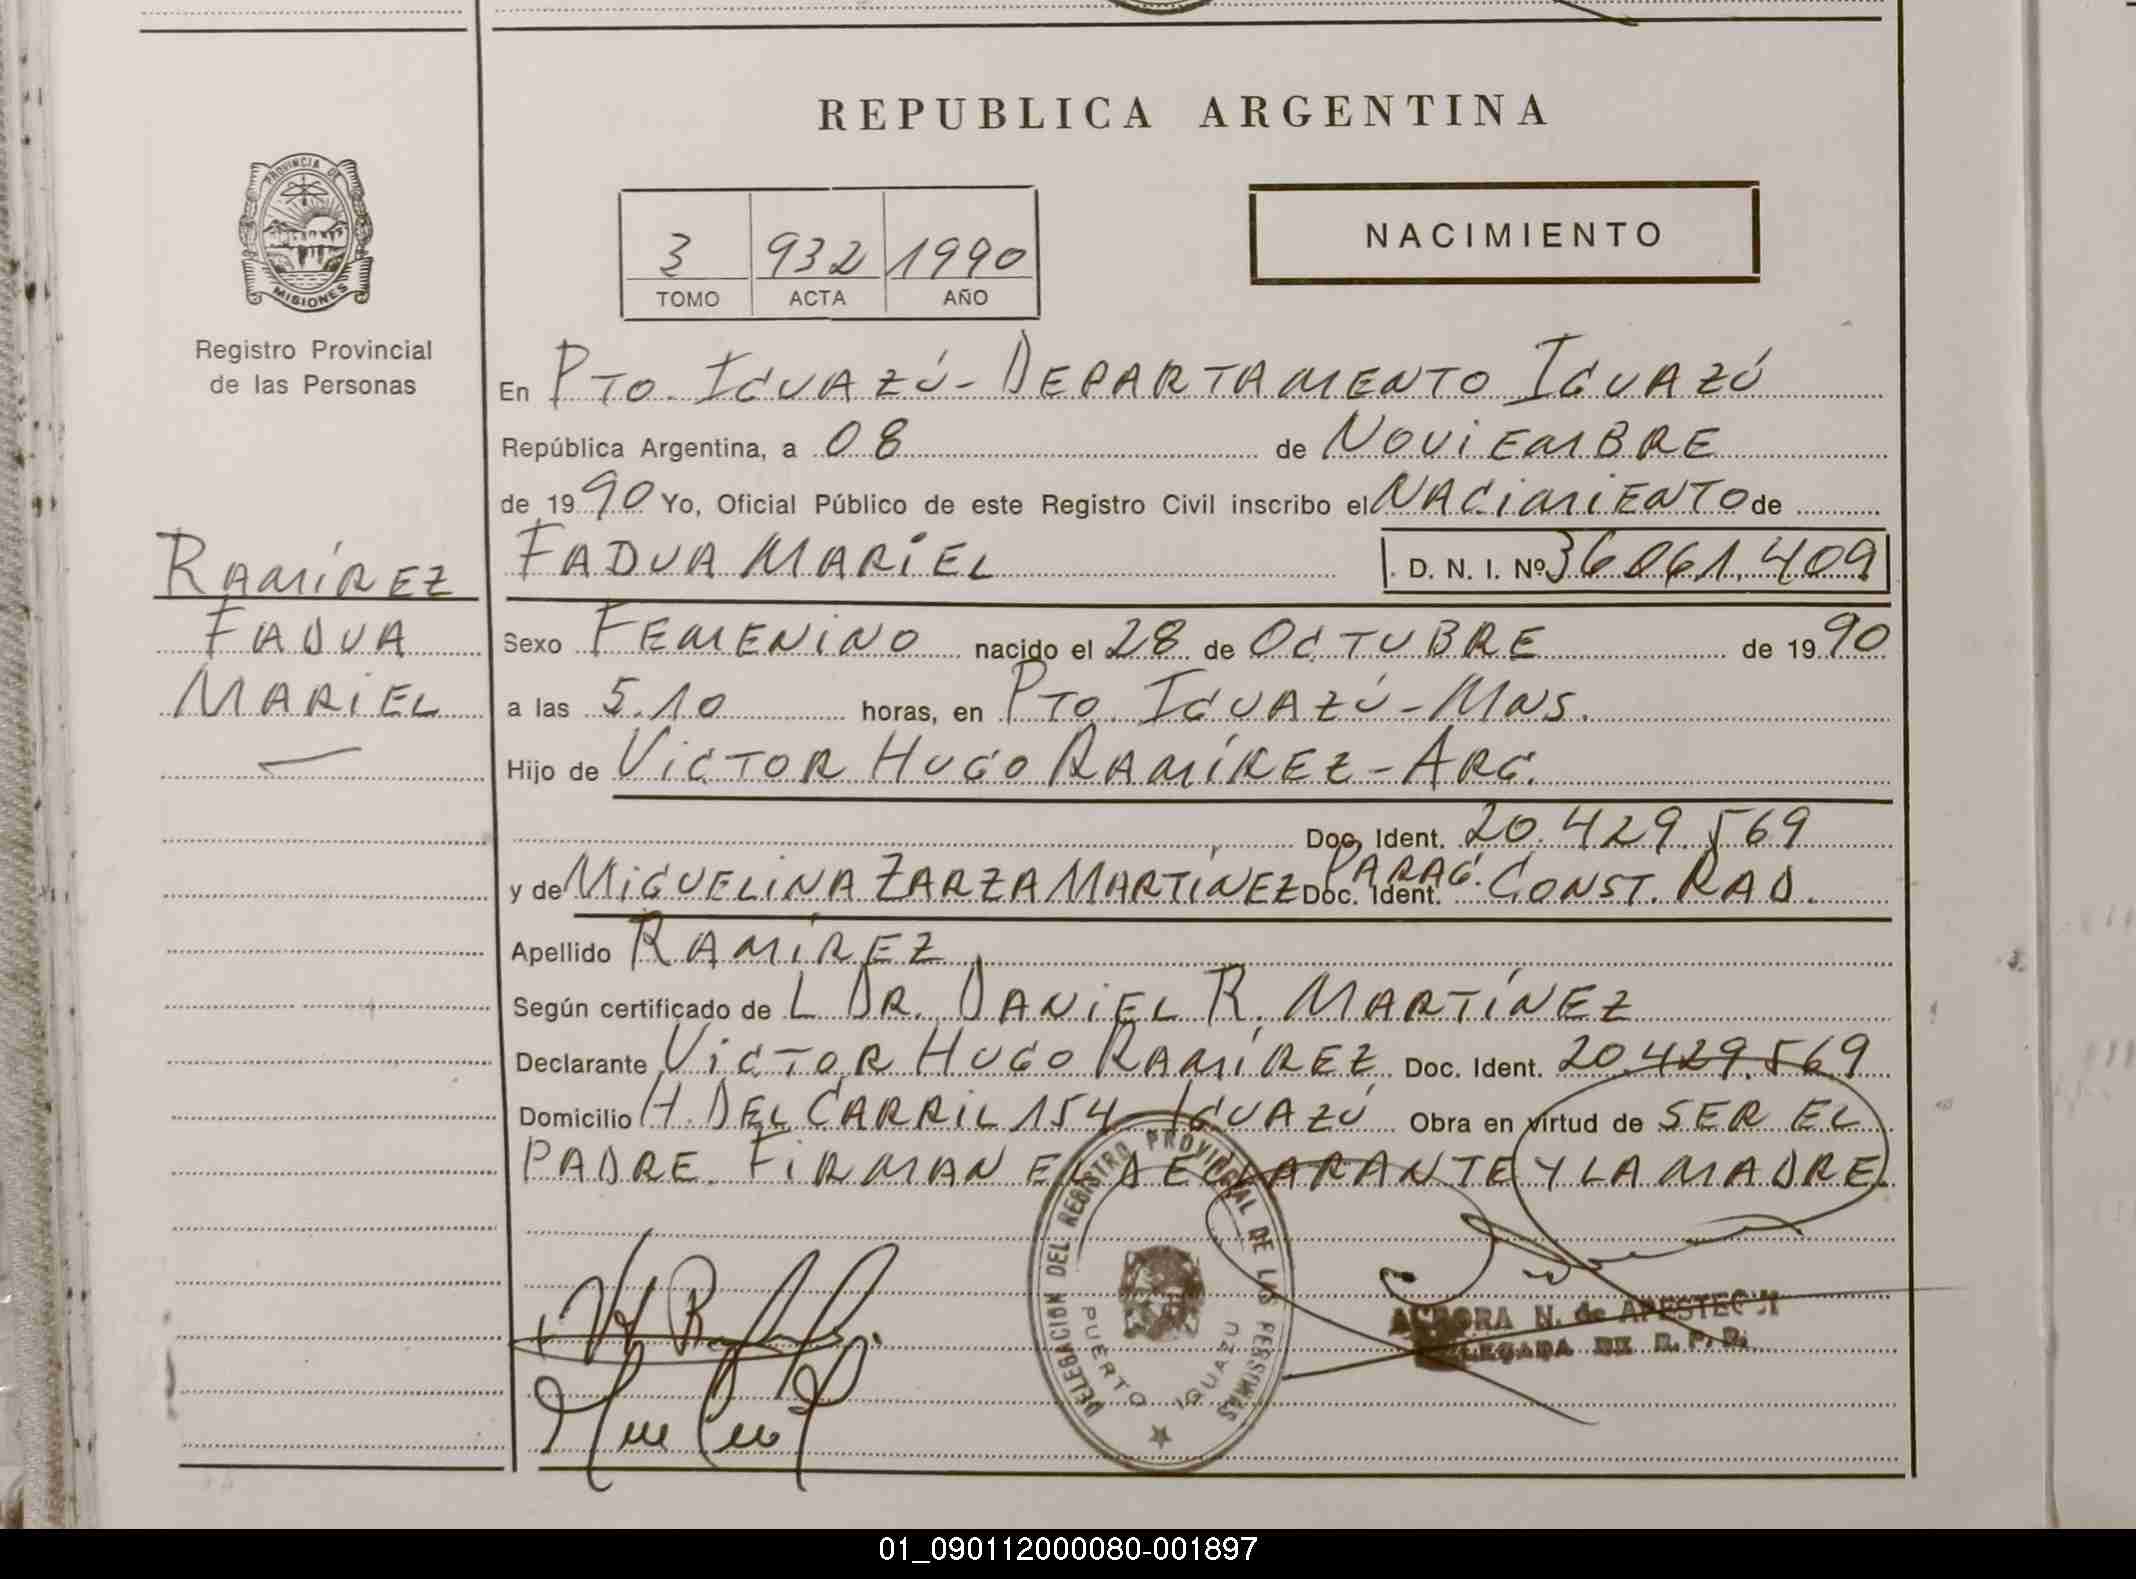 REPUBLICA ARGENTINA
PROVINCIA DE
MISIONES
Registro Provincial
de las Personas
3 932 1990
TOMO ACTA AÑO
NACIMIENTO
En PTO. IGUAZÚ - DEPARTAMENTO IGUAZÚ
República Argentina, a 08 de NOVIEMBRE
de 1990 Yo, Oficial Público de este Registro Civil inscribo el NACIMIENTO de
RAMÍREZ
FADUA
MARIEL
FADUA MARIEL D. N. I. Nº 36.061.409
Sexo FEMENINO nacido el 28 de OCTUBRE de 1990
a las 5.10 horas, en PTO. IGUAZÚ - MNS.
Hijo de VICTOR HUGO RAMÍREZ - ARG.
Doc. Ident. 20.429.569
y de MIGUELINA ZARZA MARTÍNEZ PARAG. Doc. Ident. CONST. RAD.
Apellido RAMÍREZ
Según certificado de L DR. DANIEL R. MARTÍNEZ
Declarante VICTOR HUGO RAMÍREZ Doc. Ident. 20.429.569
Domicilio H. DEL CARRIL 154 - IGUAZÚ Obra en virtud de SER EL
PADRE. FIRMAN EL DECLARANTE Y LA MADRE.
DELEGACION DEL REGISTRO PROVINCIAL DE LAS PERSONAS
PUERTO IGUAZU
AURORA N. de APESTEGUI
DELEGADA DE R. P. P.
01_090112000080-001897